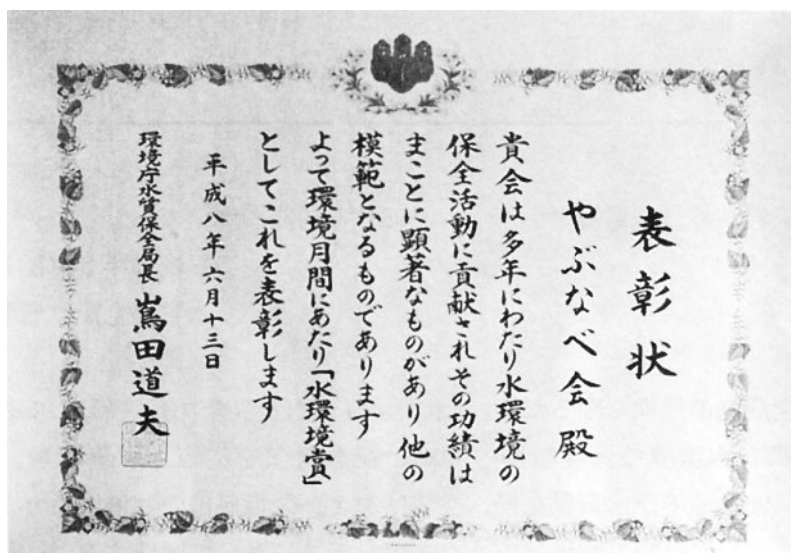 表彰状
やぶなべ会 殿
貴会は多年にわたり水環境の
保全活動に貢献されその功績は
まことに顕著なものがあり他の
模範となるものであります
よって環境月間にあたり「水環境賞」
としてこれを表彰します
平成八年六月十三日
環境庁水質保全局長 嶌田道夫